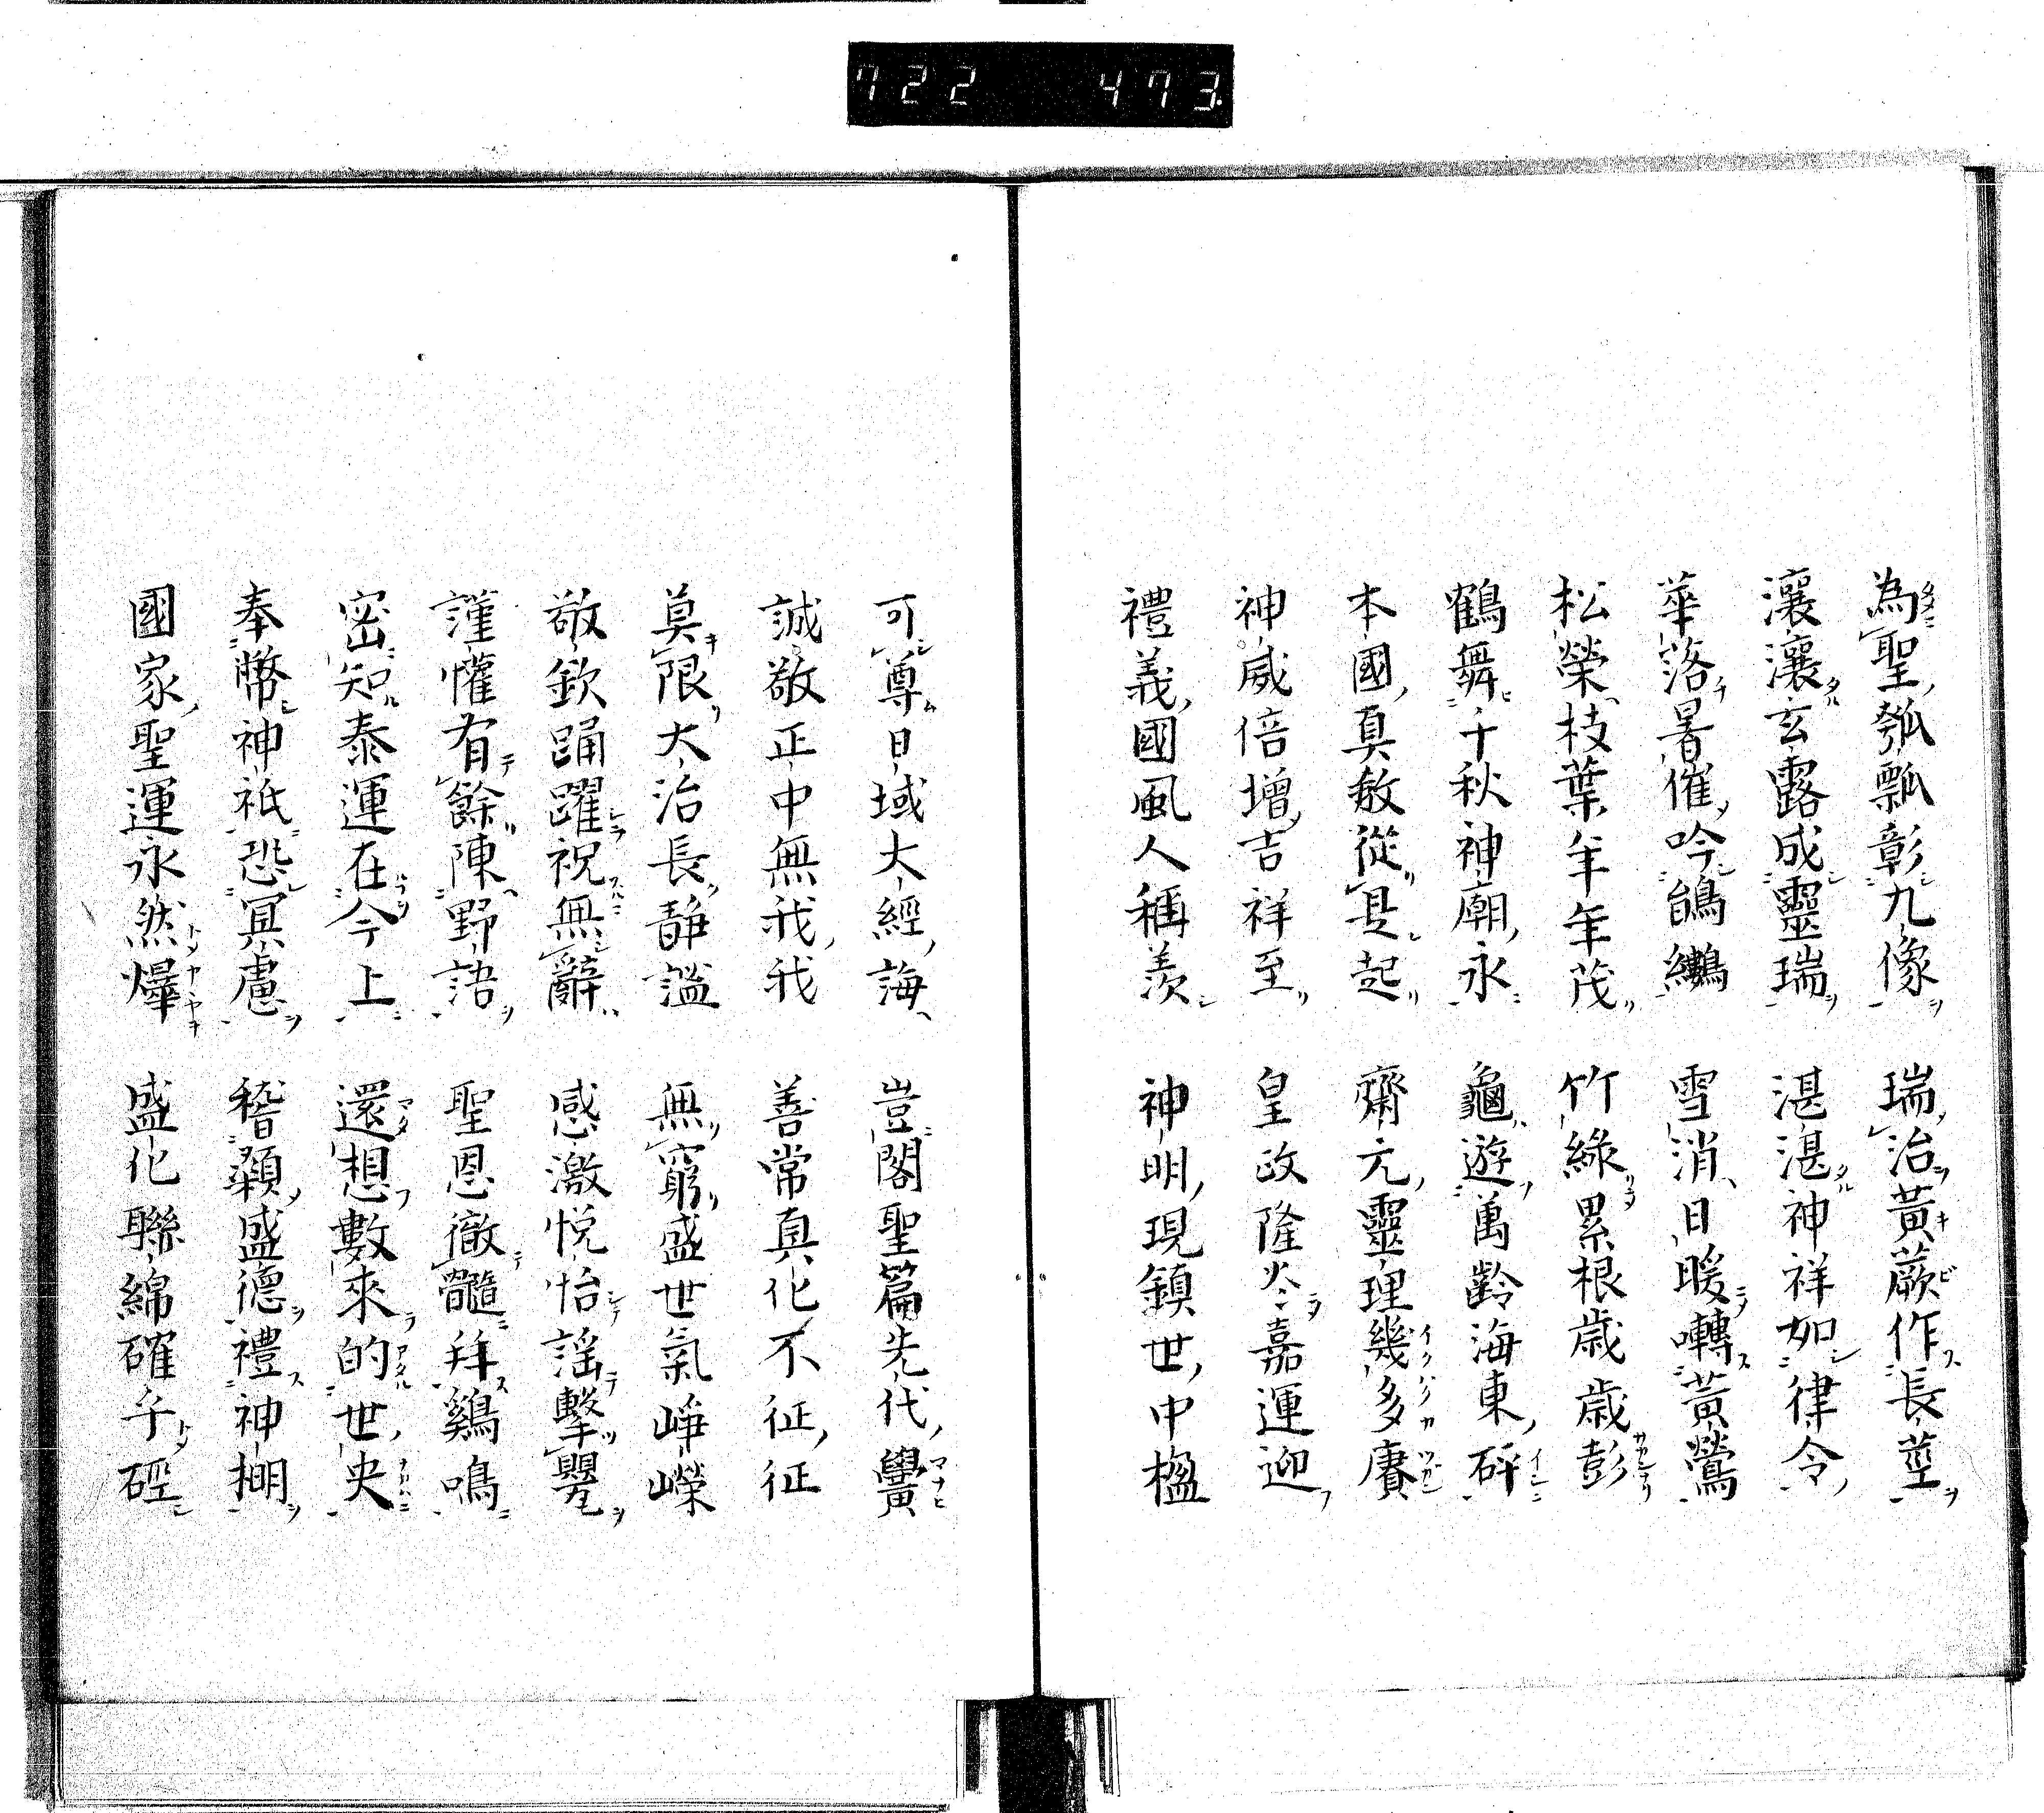 722 473
為聖瓠瓢彰九像 瑞治黃蕨作長莖
瀼瀼玄露成靈瑞 湛湛神祥如律令
華落暑催吟 雪消日暖囀黃鶯
松榮枝葉年年茂 竹綠累根歲歲彭
鶴舞千秋神廟永 龜遊萬齡海東砰
本國真敎從是起 齋元靈理幾多賡
神威倍增吉祥至 皇政隆嘉運迎
禮義國風人稱羨 神明現鎮世中楹
可尊日域大經海 豈閣聖篇先代黌
誠敬正中無我我 善常真化不征征
莫限大治長靜謐 無窮盛世氣崢嶸
敬欽踊躍祝無辭 感激悅怡謡擊
謹懽有餘陳野語 聖恩徹髓拜鷄鳴
密知泰運在今上 還想數來的世央
奉幣神祇恐冥慮 稽顙盛德禮神棚
國家聖運永然爗 盛化聯綿確乎硜